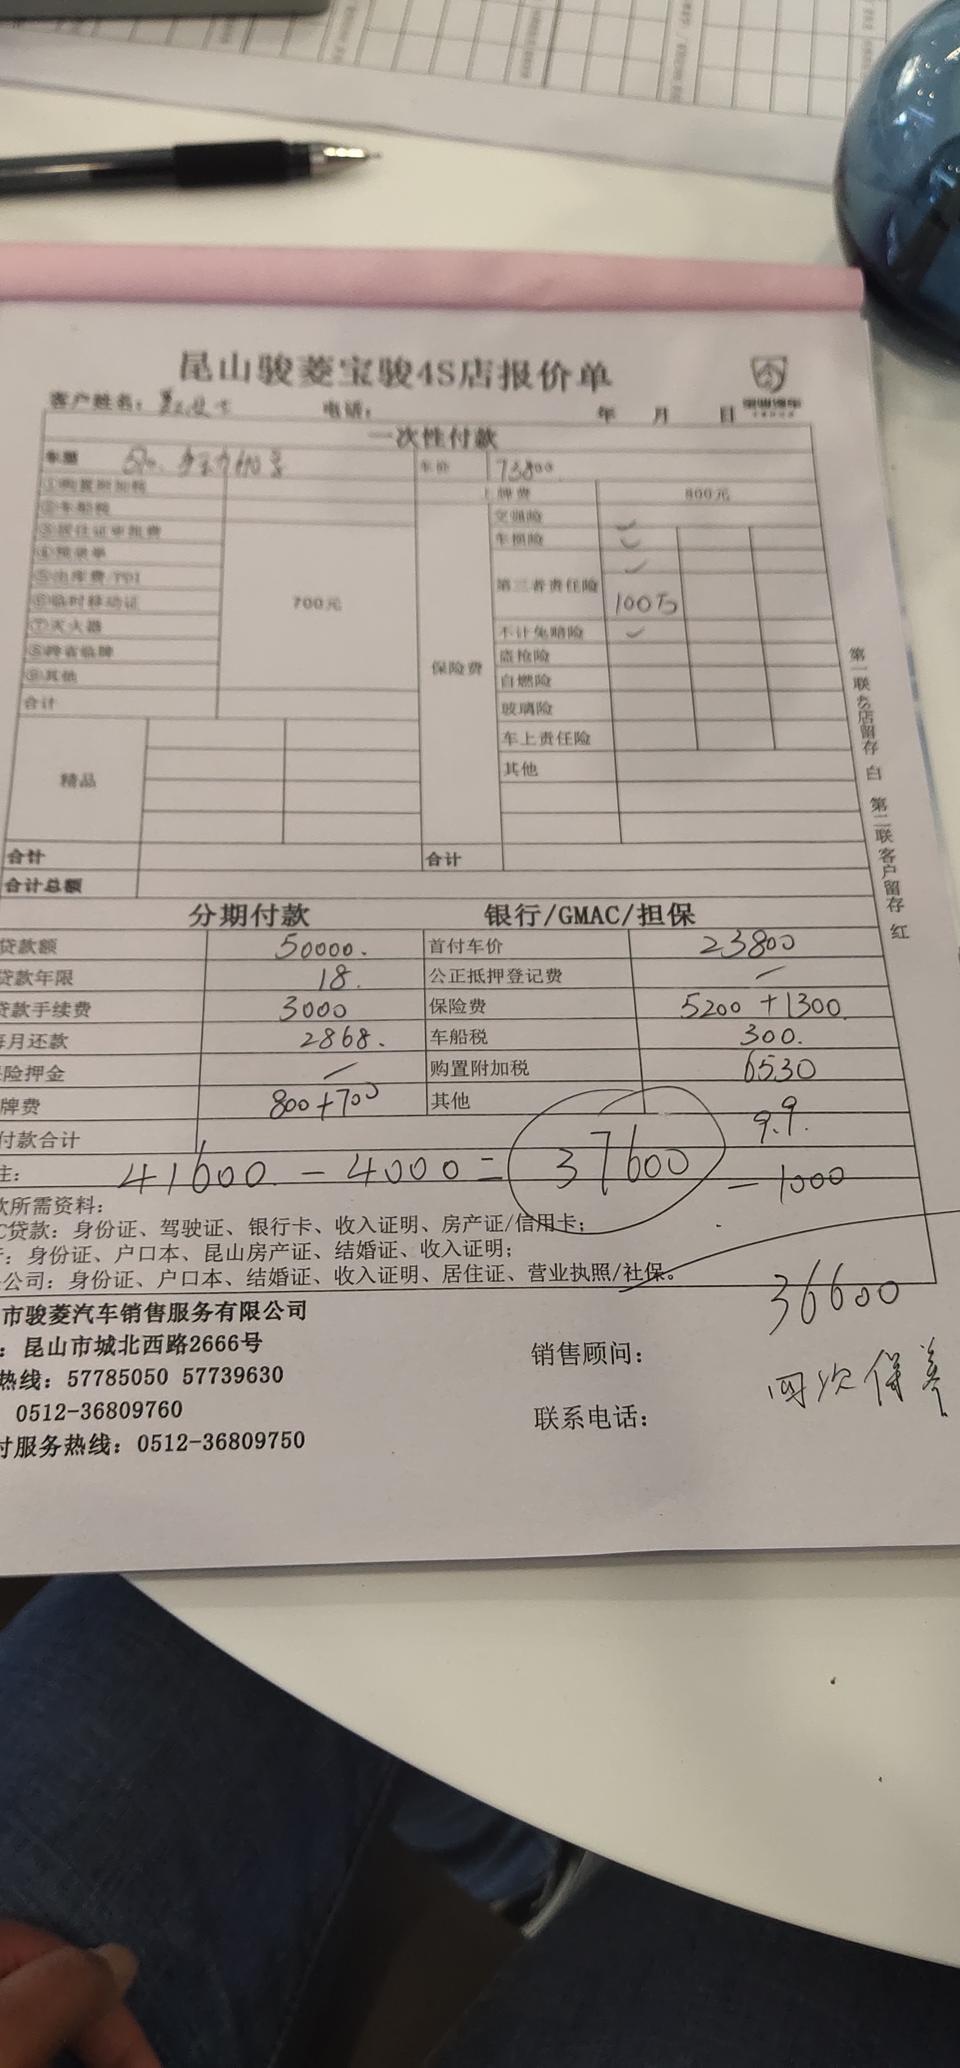 昆山骏菱宝骏4S店报价单
客户姓名： 电话： 年 月 日
一次性付款
车型 车价 73800.
①购置附加税 上牌费 800元
②车船税 交强险
③居住证审批费 车损险
④预录单
⑤出库费/PDI 第三者责任险
⑥临时移动证 700元 100万
⑦灭火器 不计免赔险
⑧跨省临牌 保险费 盗抢险
⑨其他 自燃险
合计 玻璃险
车上责任险
精品 其他
合计 合计
合计总额
分期付款 银行/GMAC/担保
贷款额 50000. 首付车价 23800
贷款年限 18. 公正抵押登记费
贷款手续费 3000 保险费 5200+1300
每月还款 2868. 车船税 300.
险押金 购置附加税 6530
牌费 800+700 其他
付款合计 9.9.
注： 41600 - 4000 = 37600 - 1000
款所需资料：
C贷款：身份证、驾驶证、银行卡、收入证明、房产证/信用卡；
行：身份证、户口本、昆山房产证、结婚证、收入证明；
公司：身份证、户口本、结婚证、收入证明、居住证、营业执照/社保。
36600
市骏菱汽车销售服务有限公司
：昆山市城北西路2666号 销售顾问：
热线：57785050 57739630 四次保养
0512-36809760 联系电话：
付服务热线：0512-36809750
第一联4S店留存 白 第二联客户留存 红